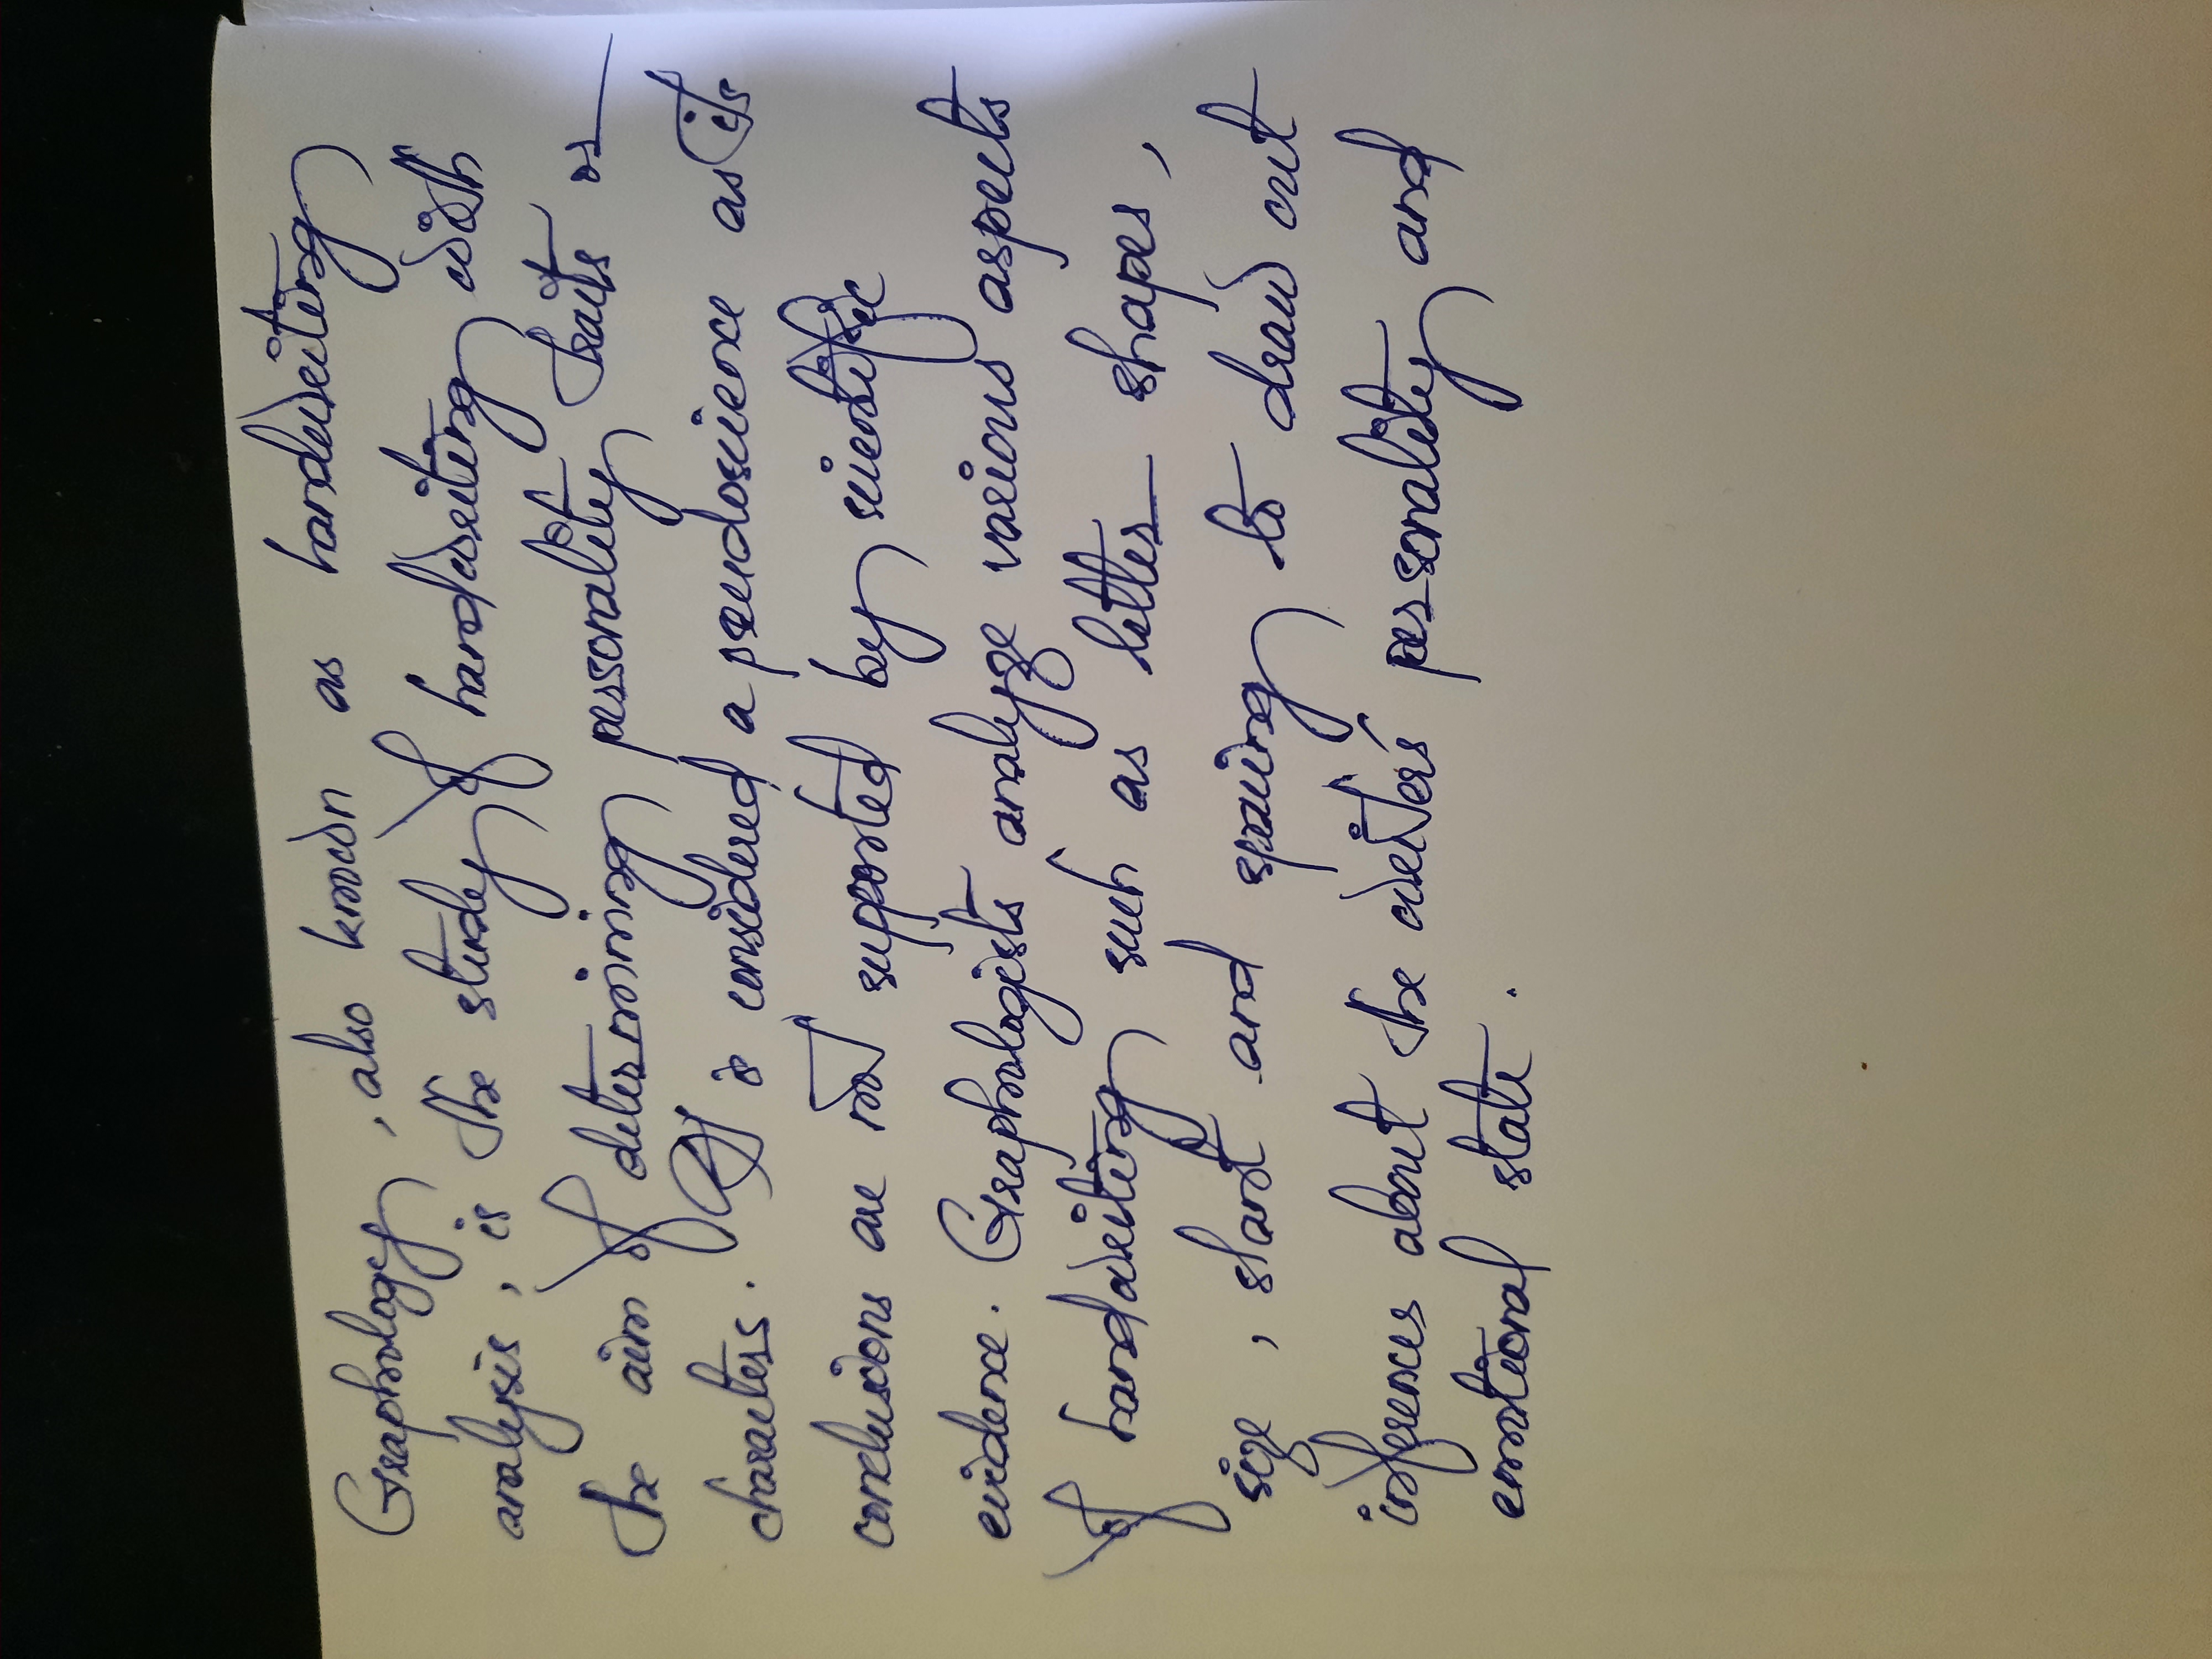 Graphology, also known as handwriting
analysis, is the study of handwriting with
the aim of determining personality traits or
character. It is considered a pseudoscience as its
conclusions are not supported by scientific
evidence. Graphologists analyze various aspects
of handwriting such as letter shapes,
size, slant and spacing to draw out
inferences about the writer's personality and
emotional state.